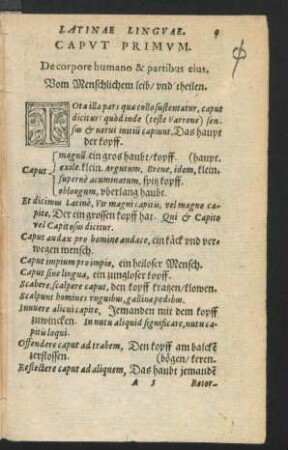 LATINAE LINGVAE. 9
CAPVT PRIMVM.
De corpore humano & partibus eius.
Vom Menschlichem leib/ vnd theilen.
TOta illa pars quæ collo sustentatur, caput
dicitur: quòd inde (teste Varrone) sen-
sus & nerui initiū capiunt, Das haupt
der kopff.
magnū. ein gros haubt/kopff. (haupt.
Caput exile. klein. Argutum, Breue, idem, klein.
supernè acuminatum, spitz kopff.
oblongum, vberlang haubt.
Et dicimus Latinè, Vir magni capitis, vel magno ca-
pite, Der ein grossen kopff hat. Qui & Capito
vel Capitosus dicitur.
Caput audax pro homine audace, ein käck vnd ver-
wegen mensch.
Caput impium pro impio, ein heiloser Mensch.
Caput sine lingua, ein zungloser kopff.
Scabere, scalpere caput, den kopff kratzen/klowen.
Scalpunt homines vnguibus, gallinæ pedibus.
Innuere alicui capite, Jemanden mit dem kopff
zuwincken. In nutu aliquid significare, nutu ca-
pitis loqui.
Offendere caput ad trabem, Den kopff am balckē
zerstossen. (bögen/ keren.
Reflectere caput ad aliquem, Das haubt jemandē
A 5 Retor-